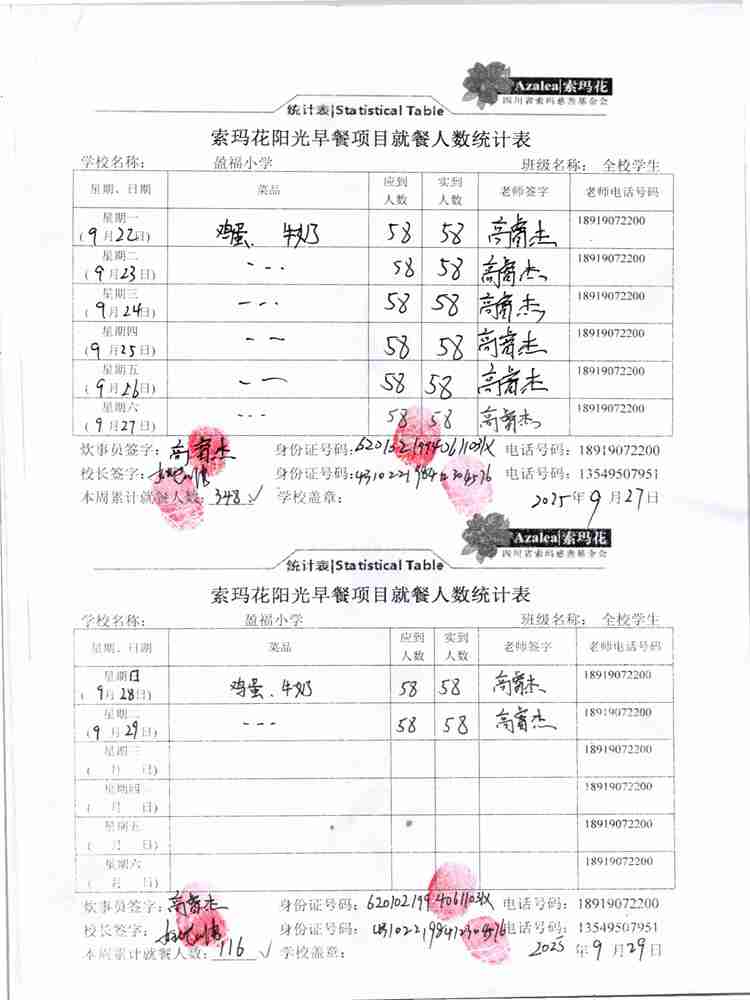 Azalea|索玛花
四川省索玛慈善基金会
统计表|Statistical Table
索玛花阳光早餐项目就餐人数统计表
学校名称： 盈福小学 班级名称： 全校学生
星期、日期 菜品 应到人数 实到人数 老师签字 老师电话号码
星期一 (9月22日) 鸡蛋、牛奶 58 58 高睿杰 18919072200
星期二 (9月23日) --- 58 58 高睿杰 18919072200
星期三 (9月24日) --- 58 58 高睿杰 18919072200
星期四 (9月25日) -- 58 58 高睿杰 18919072200
星期五 (9月26日) -- 58 58 高睿杰 18919072200
星期六 (9月27日) --- 58 58 高睿杰 18919072200
炊事员签字：高睿杰 身份证号码： 电话号码：18919072200
校长签字： 身份证号码： 电话号码：13549507951
本周累计就餐人数：348√ 学校盖章： 2025年9月27日
Azalea|索玛花
四川省索玛慈善基金会
统计表|Statistical Table
索玛花阳光早餐项目就餐人数统计表
学校名称： 盈福小学 班级名称： 全校学生
星期、日期 菜品 应到人数 实到人数 老师签字 老师电话号码
星期日 (9月28日) 鸡蛋、牛奶 58 58 高睿杰 18919072200
星期二 (9月29日) --- 58 58 高睿杰 18919072200
星期三 ( 月 日) 18919072200
星期四 ( 月 日) 18919072200
星期五 ( 月 日) 18919072200
星期六 ( 月 日) 18919072200
炊事员签字：高睿杰 身份证号码： 电话号码：18919072200
校长签字： 身份证号码： 电话号码：13549507951
本周累计就餐人数：116√ 学校盖章： 2025年9月29日